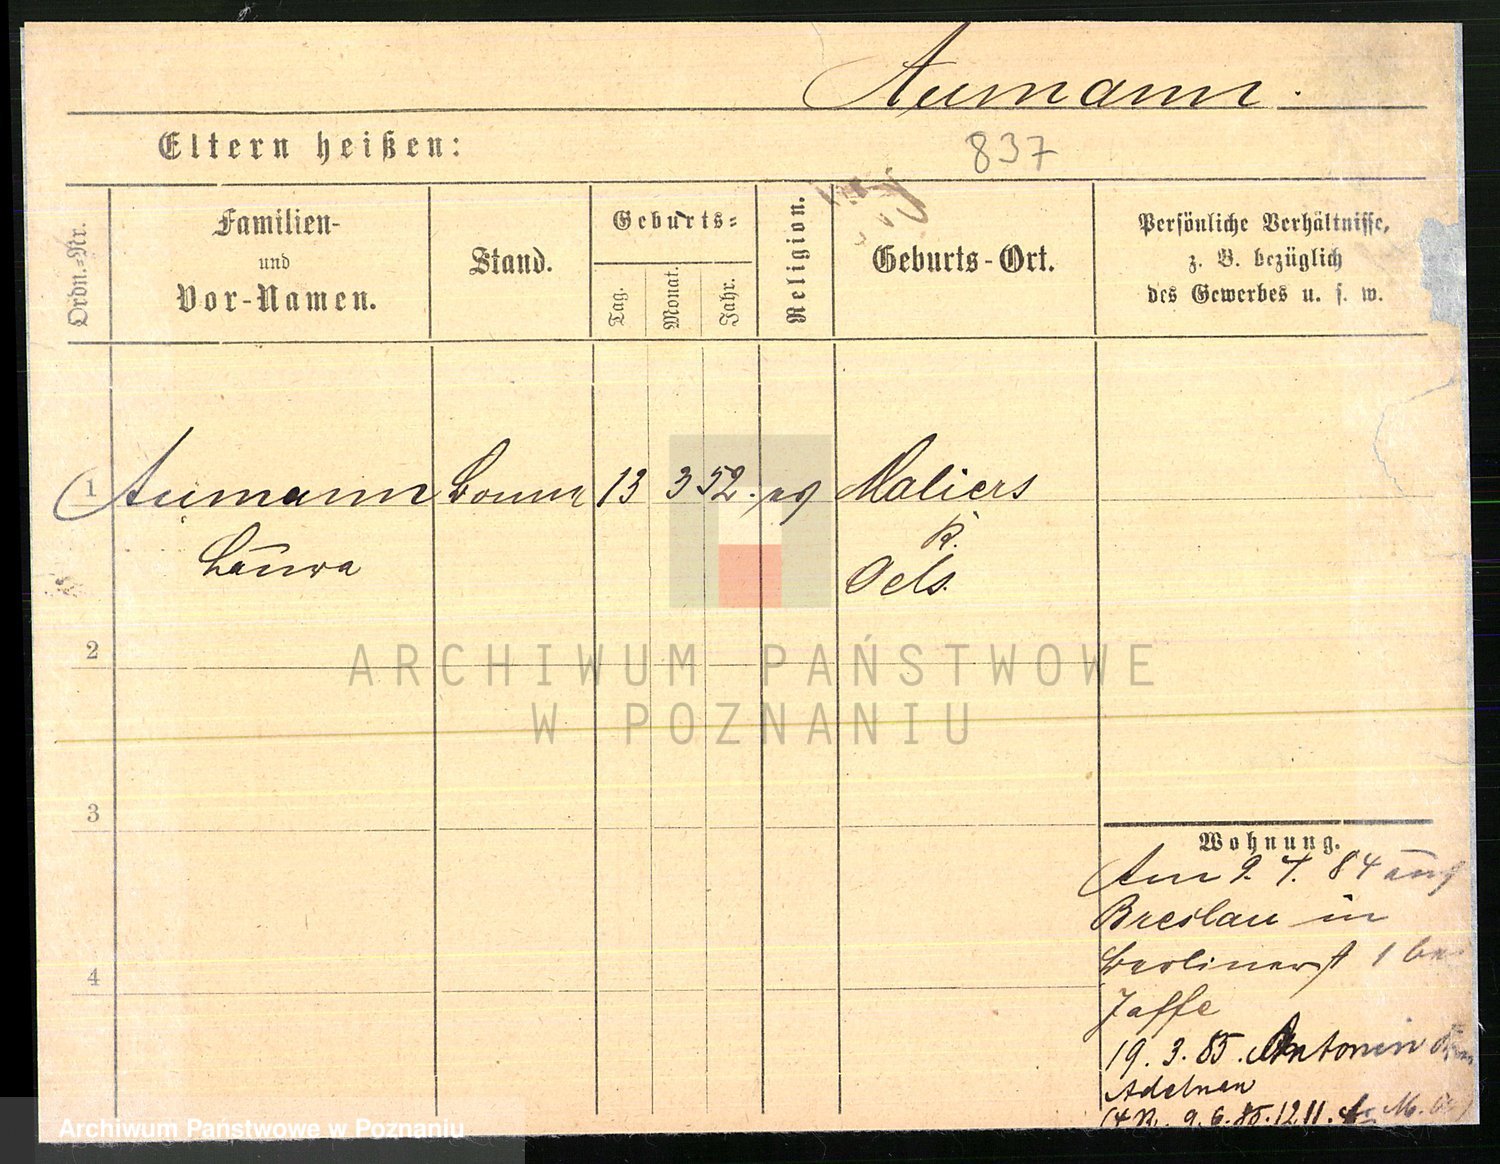 Aumann.
Eltern heißen:
837
Ordn.=Nr.
Familien-
und
Vor-Namen.
Stand.
Geburts=
Tag.
Monat.
Jahr.
Religion.
Geburts-Ort.
Persönliche Verhältnisse,
z. B. bezüglich
des Gewerbes u. s. w.
1 Aumann Bonne 13 3 52. Maliers
Laura
K.
Oels.
ARCHIWUM PAŃSTWOWE
W POZNANIU
2
3
4
Wohnung.
Am 9. 4. 84 aus
Breslau in
Berlinerst 1 bei
Jaffe
19. 3. 85. Antonin
Adelnau
9. 6. 85. 12. 11.
Archiwum Państwowe w Poznaniu